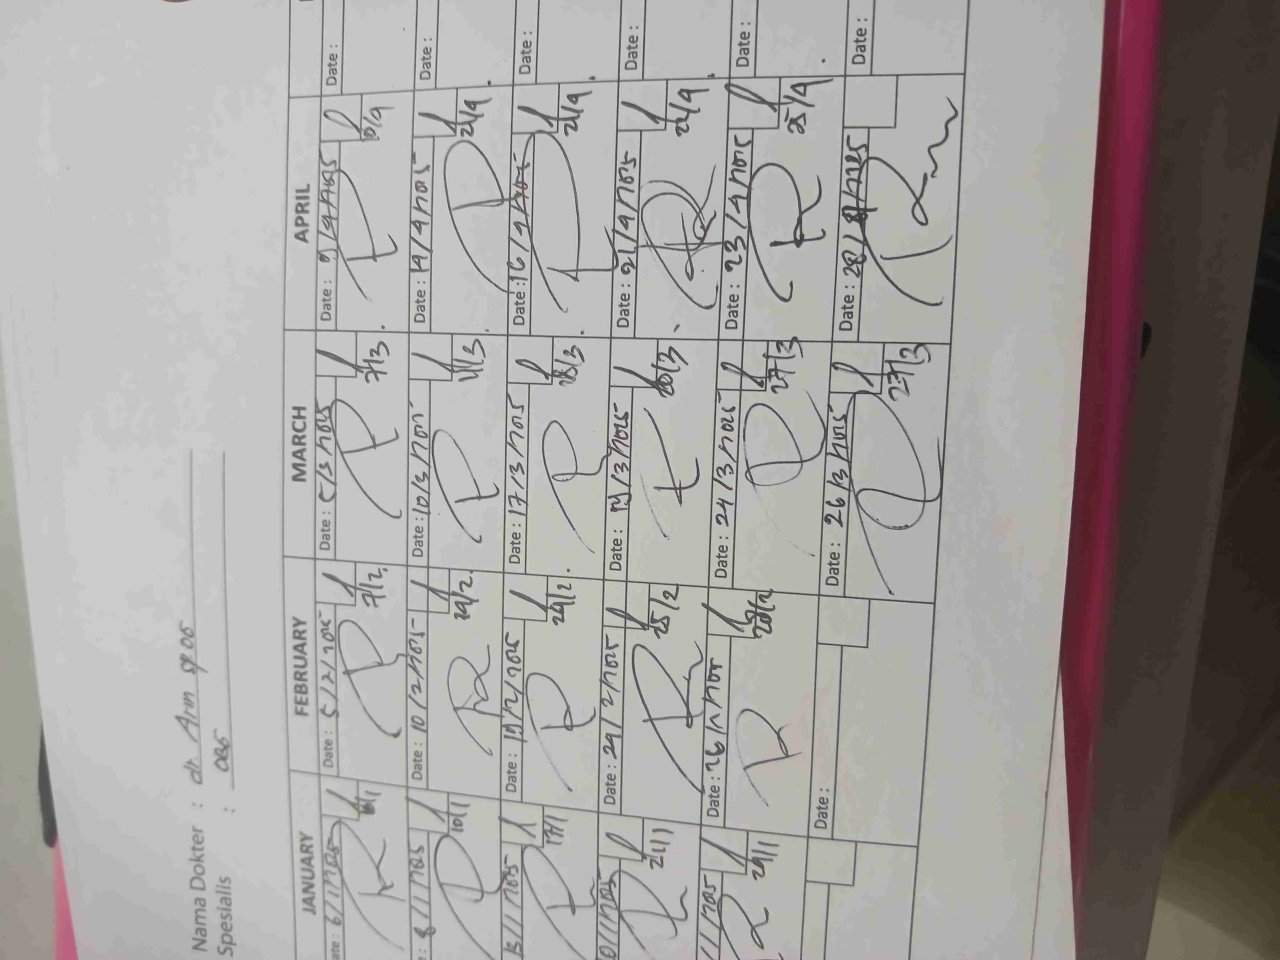 Nama Dokter : dr. Arm SpOG
Spesialis :
JANUARY FEBRUARY MARCH APRIL
6/1/2025 Date : 5/2/2025 Date : 5/3/2025 Date : 9/4/2025 Date :
7/2. 7/3.
8/1/2025 Date : 10/2/2025 Date : 10/3/2025 Date : 14/4/2025 Date :
10/1 24/2. 11/3. 21/4.
13/1/2025 Date : 19/2/2025 Date : 17/3/2025 Date : 16/4/2025 Date :
17/1 24/2. 18/3. 21/4.
Date : 24/2/2025 Date : 19/3/2025 Date : 21/4/2025 Date :
21/1 25/2 20/3 22/4.
Date : 26/2/2025 Date : 24/3/2025 Date : 23/4/2025 Date :
24/1 28/2 27/3 25/4.
Date : Date : 26/3/2025 Date : 28/4/2025 Date :
27/3